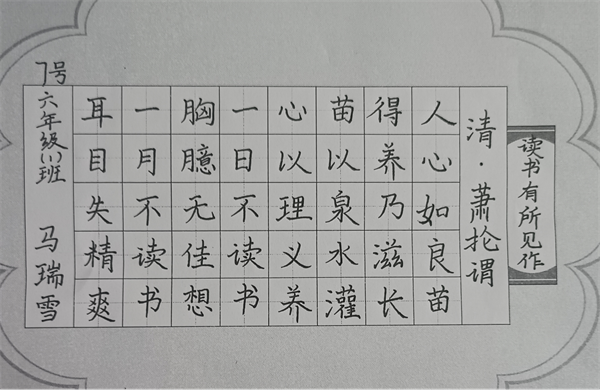 读书有所见作
清·萧抡谓
人心如良苗
得养乃滋长
苗以泉水灌
心以理义养
一日不读书
胸臆无佳想
一月不读书
耳目失精爽
7号
六年级(1)班 马瑞雪